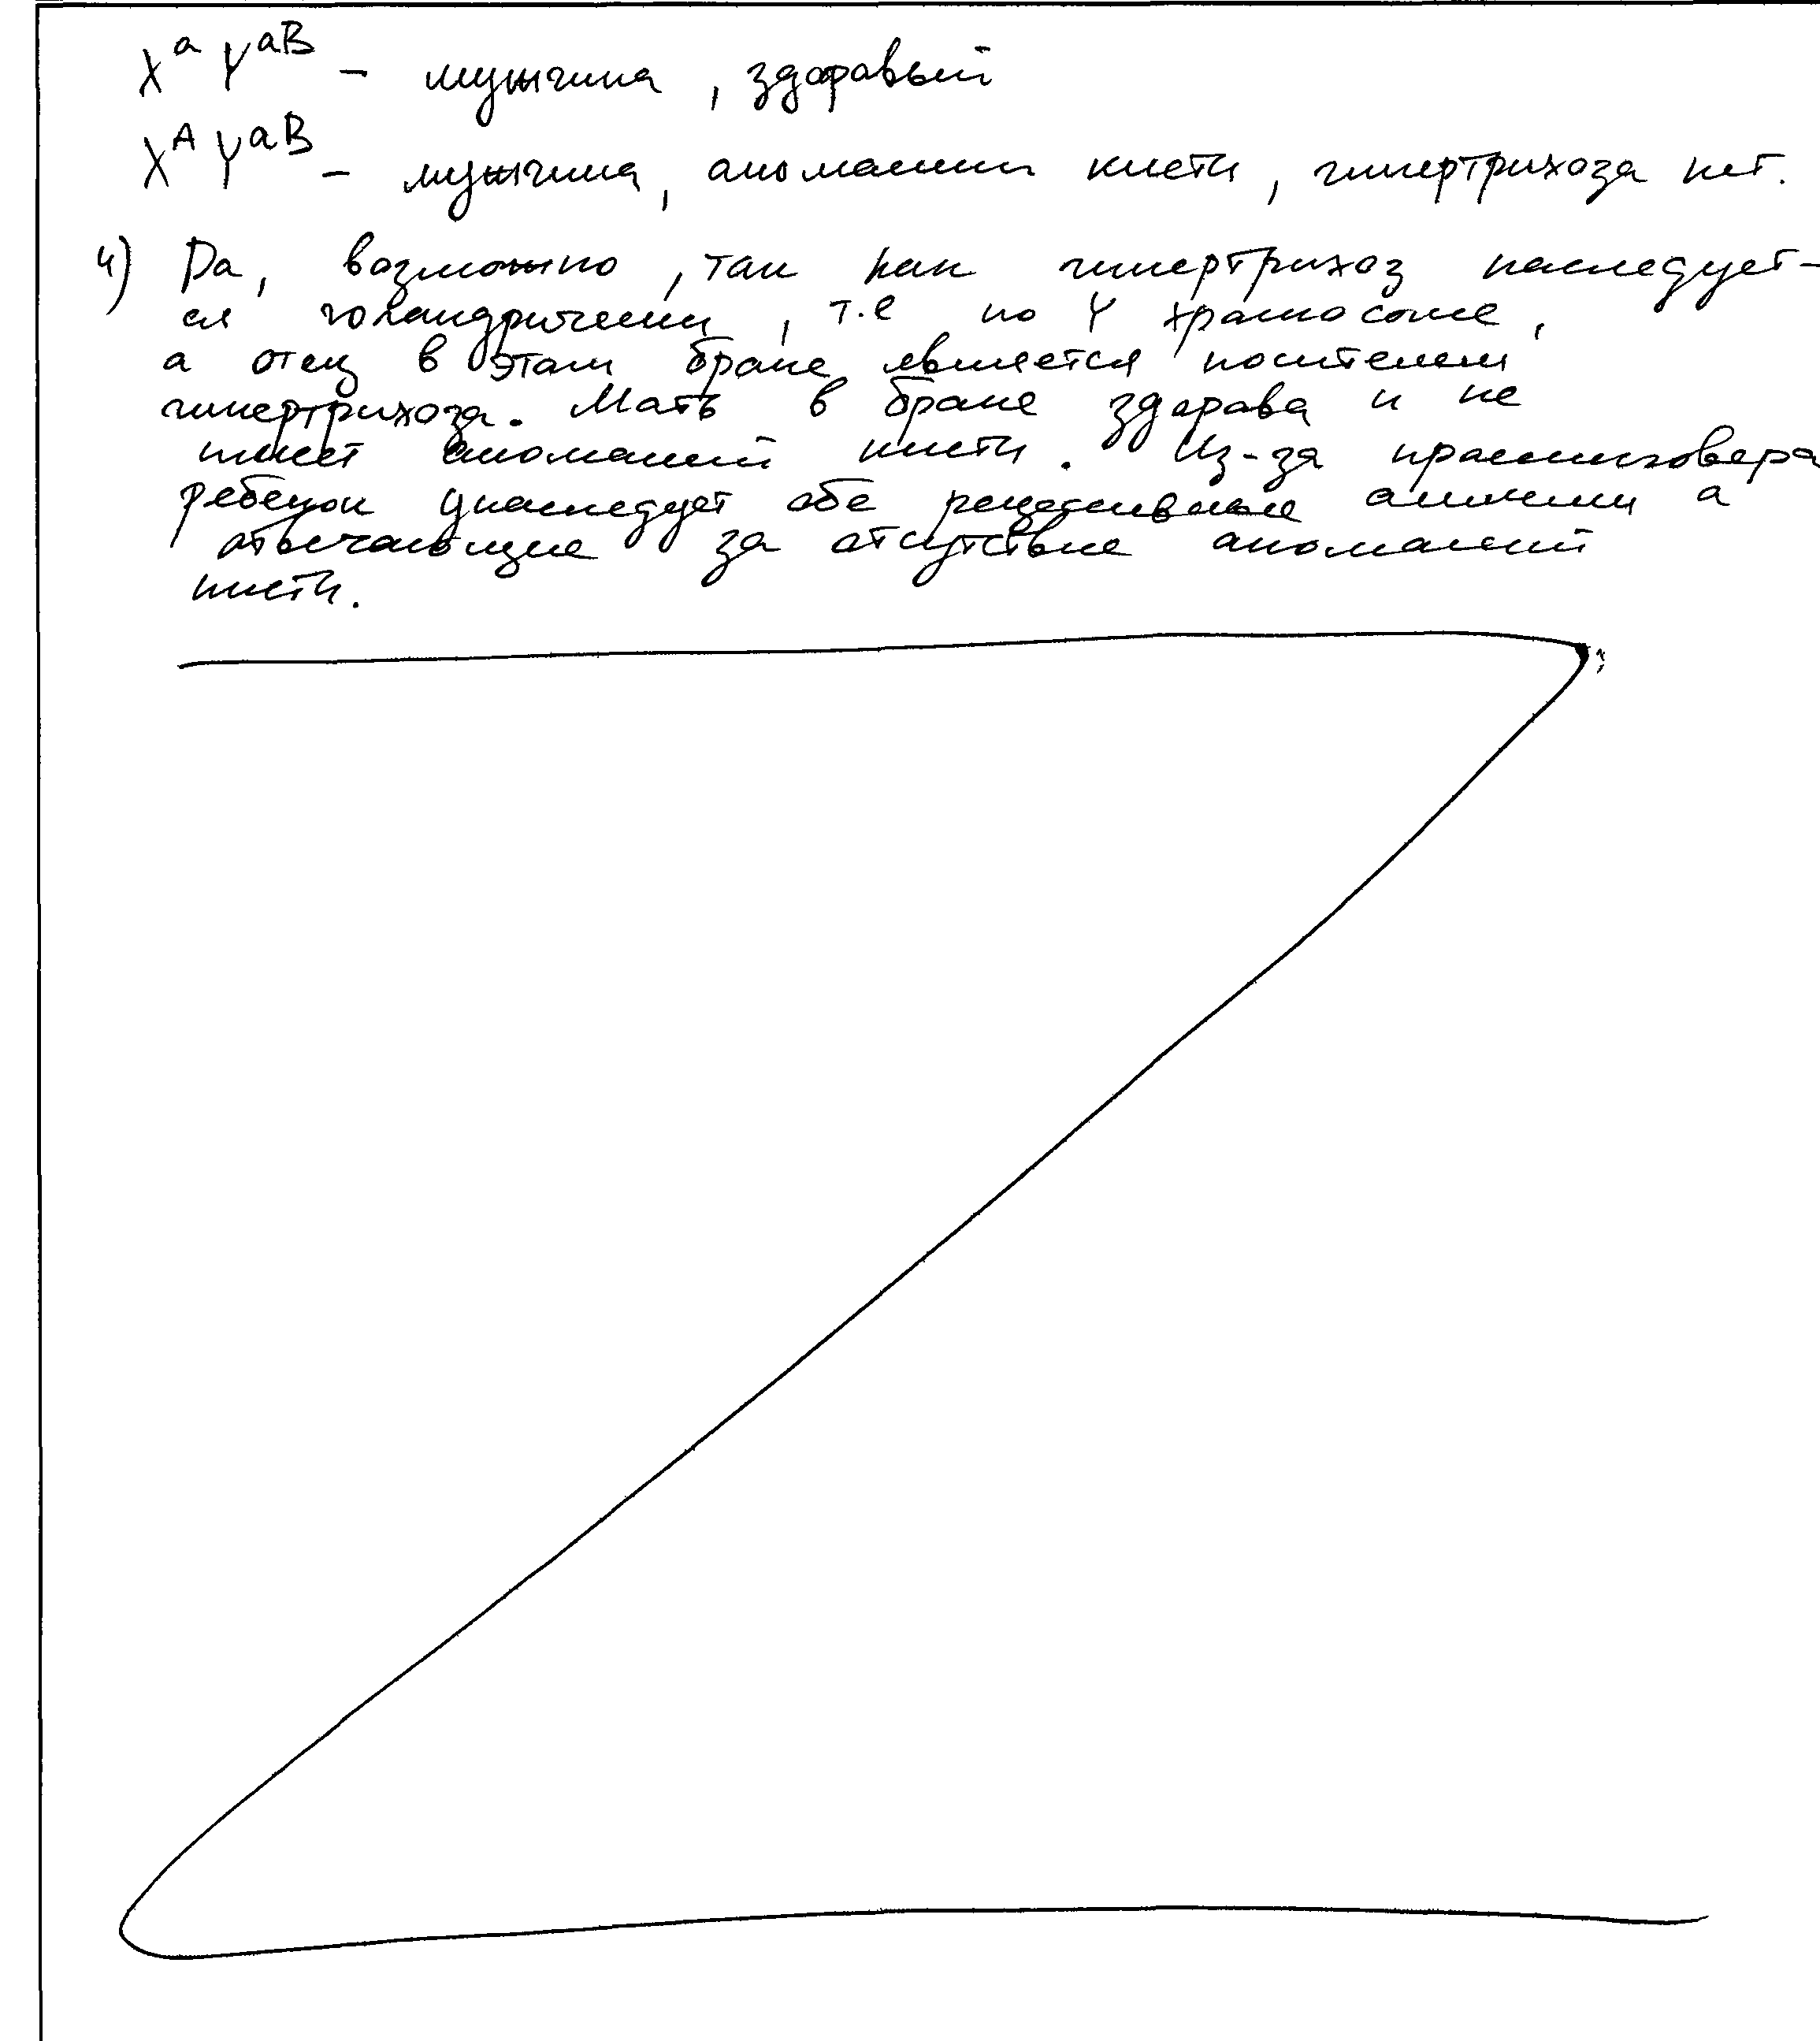 X^a Y^aB – мужчина, здоровый
X^A Y^aB – мужчина, аномалии кисти, гипертрихоза нет.
4) Да, возможно, так как гипертрихоз наследует-
ся голандрически, т.е по Y хромосоме,
а отец в этом браке является носителем
гипертрихоза. Мать в браке здорова и не
имеет аномалий кисти. Из-за кроссинговера
ребенок унаследует обе рецессивные аллели а
отвечающие за отсутствие аномалий
кисти.